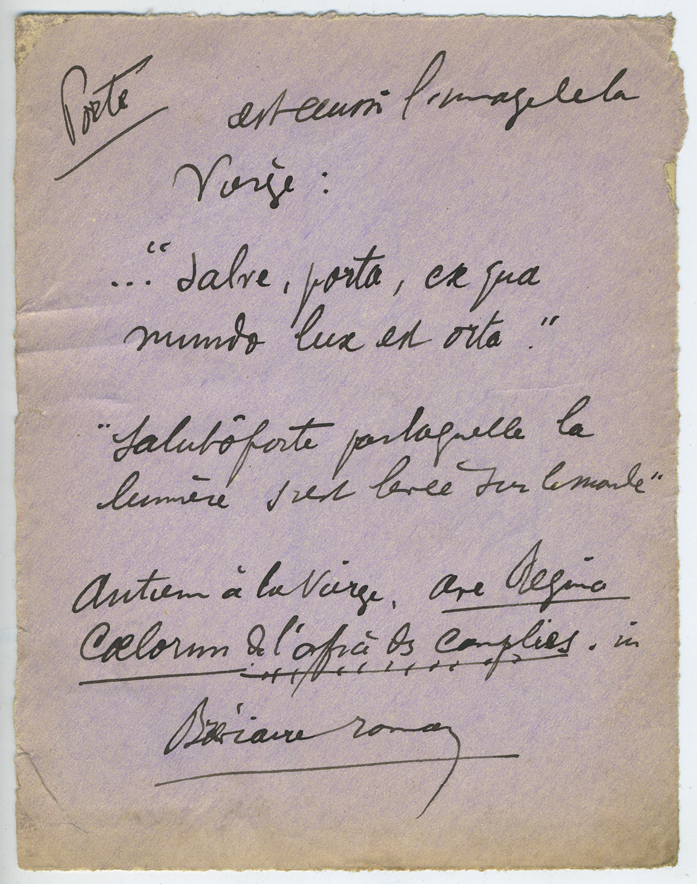 Porte est aussi l'image de la
Vierge :
..." Salve, porta, ex qua
mundo lux est orta."
"Salut ô porte par laquelle la
lumière s'est levée sur le monde"
Antienn à la Vierge, Ave Regina
Cœlorum de l'office des complies. in
Bréviaire romain